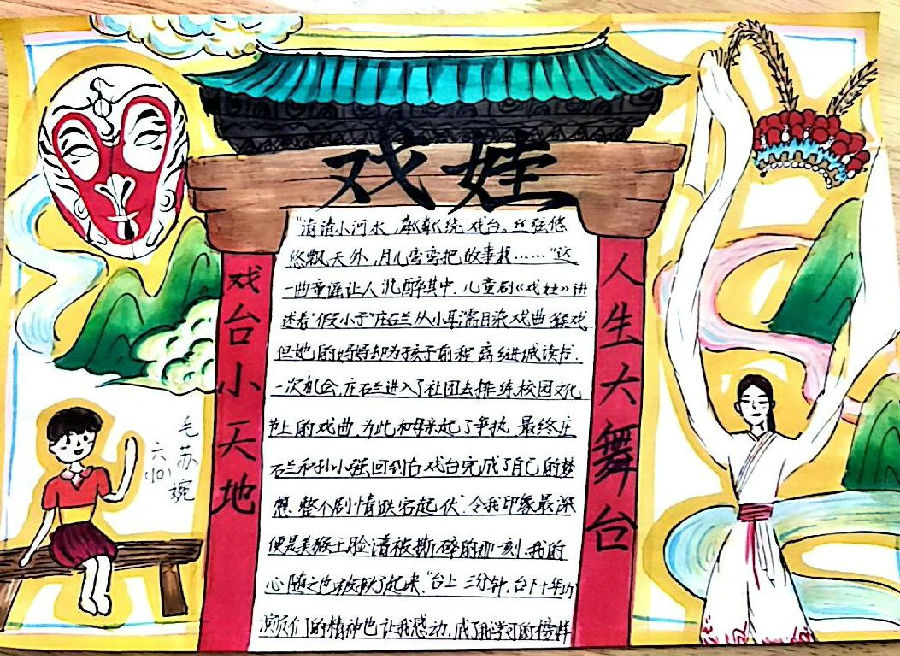 戏娃
戏台小天地
人生大舞台
"清清小河水,绕戏台,丝弦悠
悠飘天外,月儿弯弯把故事载……"这
一曲童谣让人沉醉其中,儿童剧《戏娃》讲
述着"假小子"庄石兰从小耳濡目染戏曲
但她的妈妈却为孩子前程进城读书,
一次机会,庄石兰进入了社团去排练校园文化
节上的戏曲,为此和母亲起了争执,最终庄
石兰和孙小强回到台戏台完成了自己的梦
想,整个剧情跌宕起伏,令我印象最深
便是美猴王脸谱被撕碎的那一刻,我的
心随之也被揪了起来。"台上三分钟,台下十年功"
演员们的精神也让我感动,成了我学习的榜样
毛苏婉
六(10)